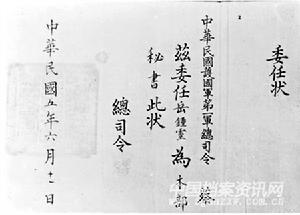 委任狀
中華民國護國軍第一軍總司令 蔡
茲委任岳鍾靈為本部
秘書此狀
總司令
中華民國五年六月十一日
中国档案资讯网